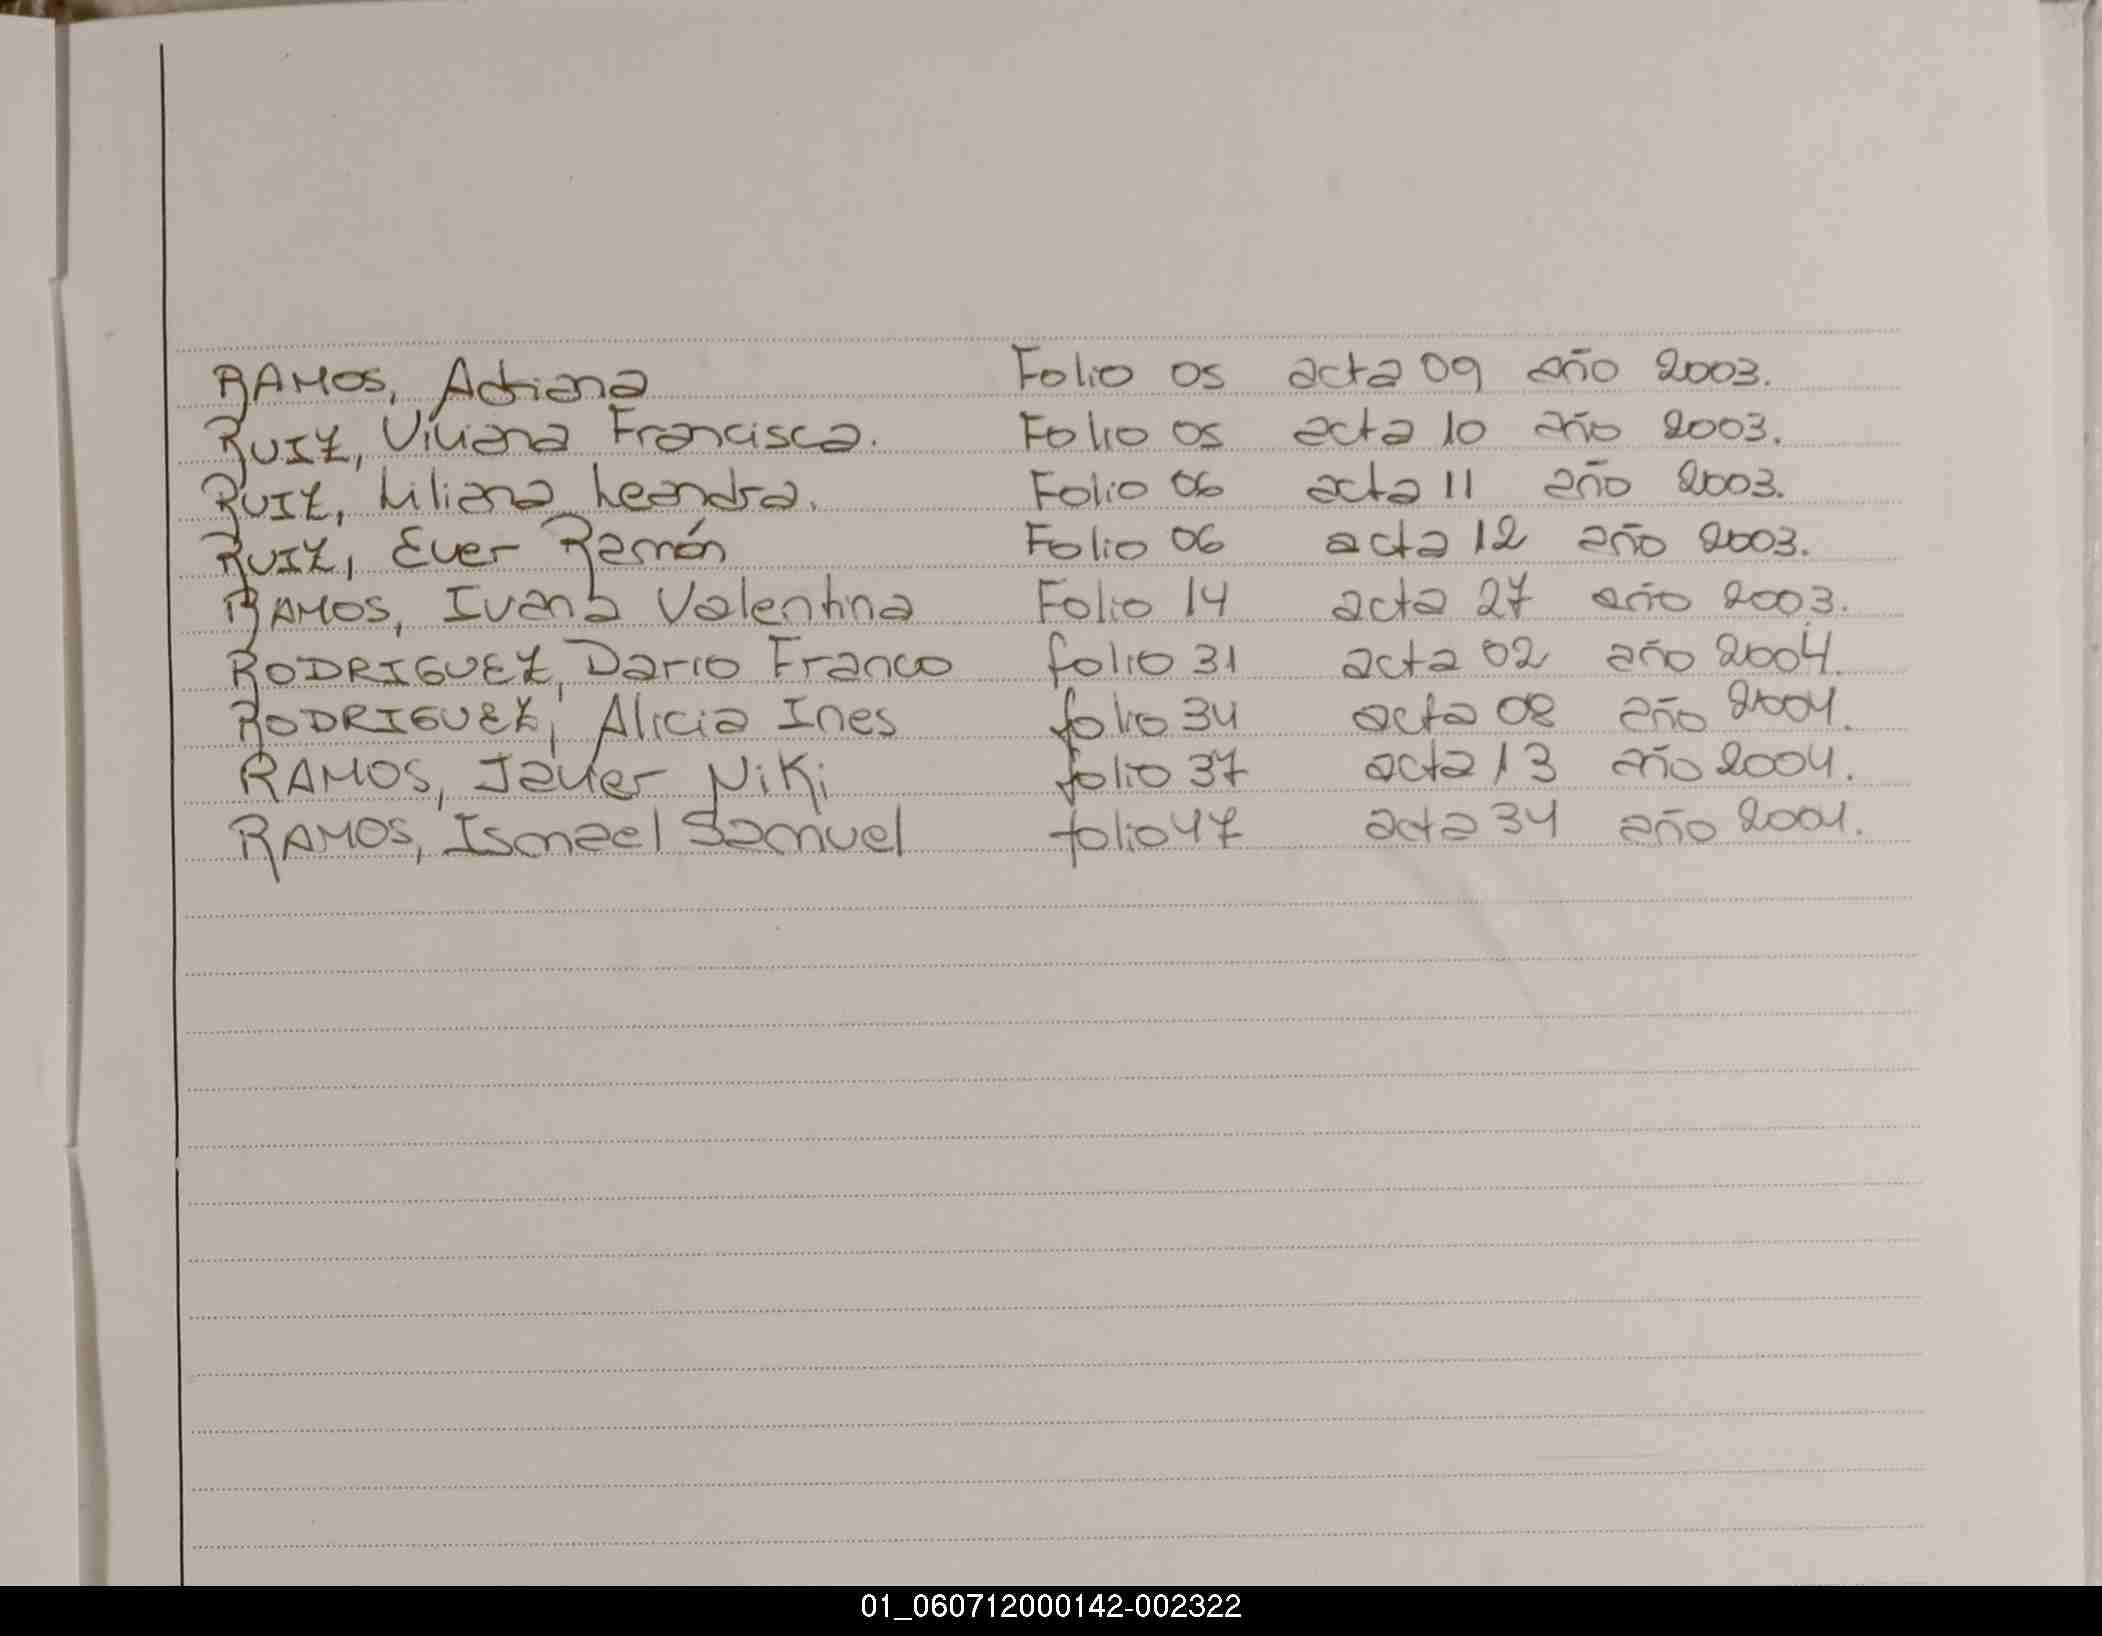 RAMOS, Adriana Folio 05 acta 09 año 2003.
RUIZ, Viviana Francisca. Folio 05 acta 10 año 2003.
RUIZ, Liliana Leandra. Folio 06 acta 11 año 2003.
RUIZ, Ever Ramón Folio 06 acta 12 año 2003.
RAMOS, Ivana Valentina Folio 14 acta 27 año 2003.
RODRIGUEZ, Dario Franco folio 31 acta 02 año 2004.
RODRIGUEZ, Alicia Ines folio 34 acta 08 año 2004.
RAMOS, Javier Niki folio 37 acta 13 año 2004.
RAMOS, Ismael Samuel folio 47 acta 34 año 2004.
01_060712000142-002322